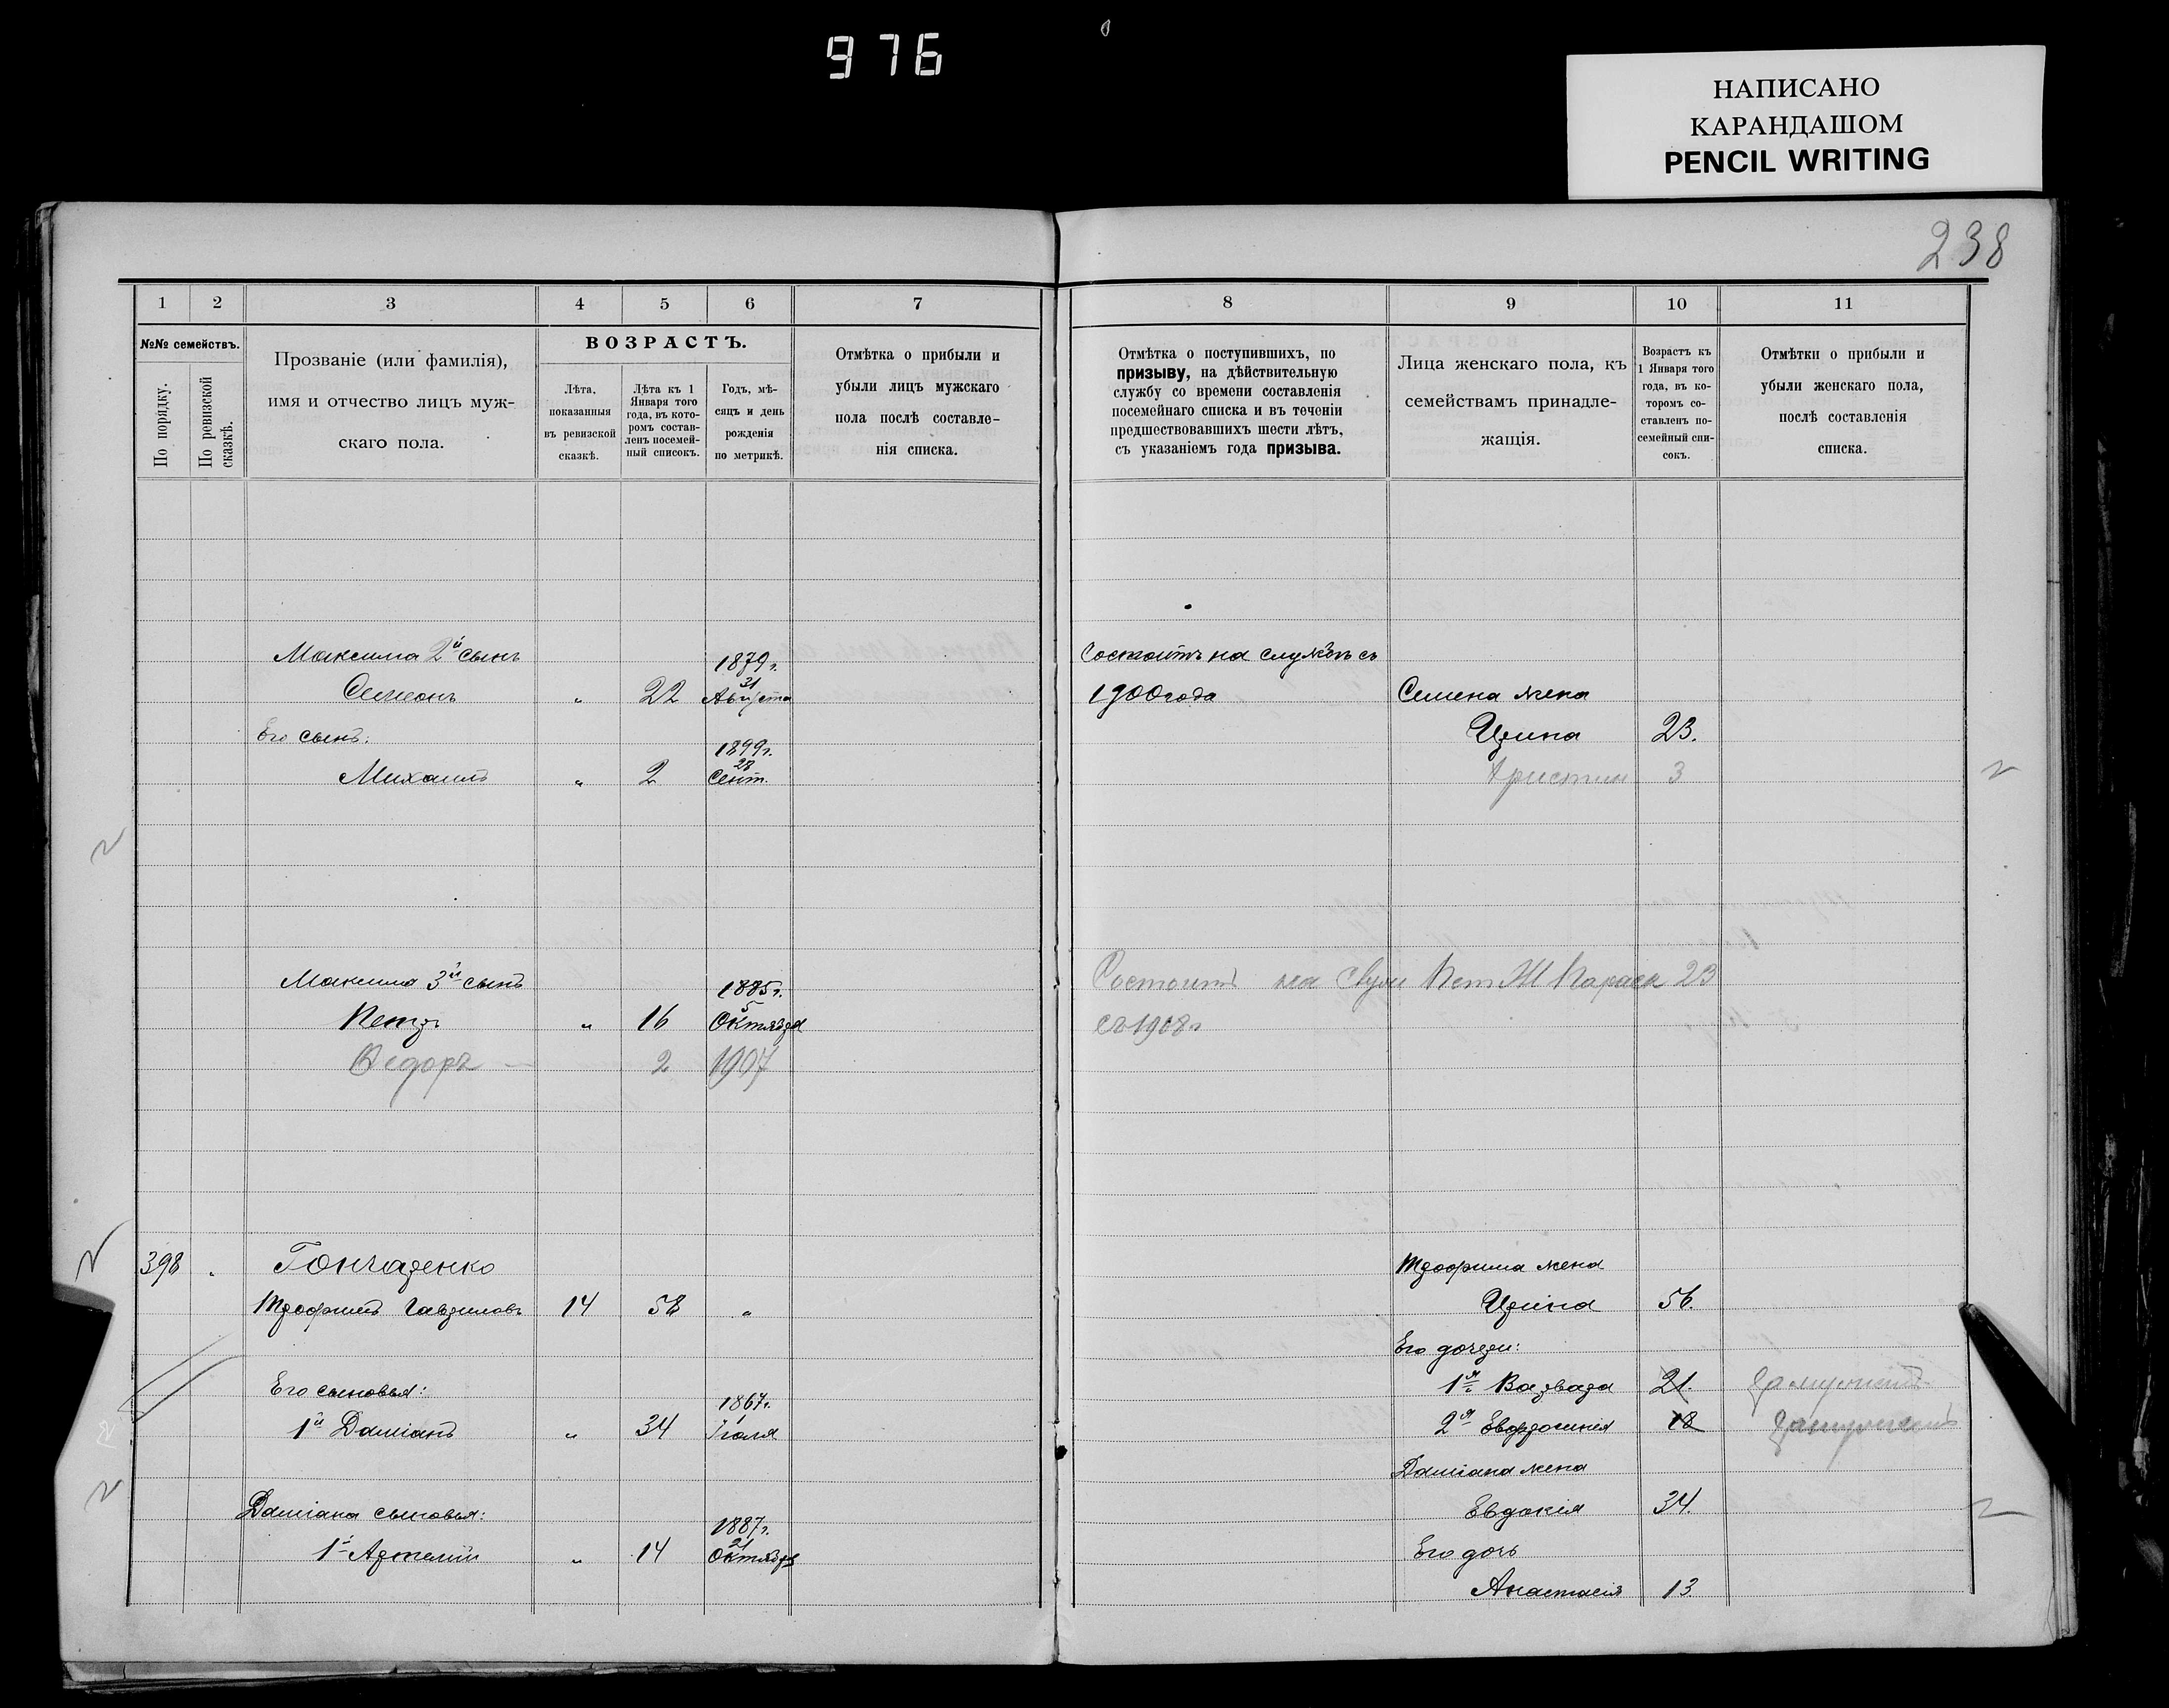 976
НАПИСАНО
КАРАНДАШОМ
PENCIL WRITING
238
1 2 3 4 5 6 7
№№ семействъ.
По порядку.
По ревизской сказкѣ.
Прозваніе (или фамилія),
имя и отчество лицъ муж-
скаго пола.
ВОЗРАСТЪ.
Лѣта,
показанныя
въ ревизской
сказкѣ.
Лѣта къ 1
Января того
года, въ кото-
ромъ состав-
ленъ посемей-
ный списокъ.
Годъ, мѣ-
сяцъ и день
рожденія
по метрикѣ.
Отмѣтка о прибыли и
убыли лицъ мужскаго
пола послѣ составле-
нія списка.
Максима 2й сынъ
1879 г.
31
Семеонъ " 22 Августа
Его сынъ:
1899 г.
28
Михаилъ " 2 Сент.
Максима 3й сынъ
1885 г.
5
Петръ " 16 Октября
Федоръ 2 1907
398 " Гончаренко
Трофимъ Гавриловъ 14 58 "
Его сыновья:
1867 г.
1
1й Даміанъ " 34 Іюля
Даміана сыновья:
1887 г.
21
1й Артемій " 14 Октября
8 9 10 11
Отмѣтка о поступившихъ, по
призыву, на дѣйствительную
службу со времени составленія
посемейнаго списка и въ теченіи
предшествовавшихъ шести лѣтъ,
съ указаніемъ года призыва.
Лица женскаго пола, къ
семействамъ принадле-
жащія.
Возрастъ къ
1 Января того
года, въ ко-
торомъ со-
ставленъ по-
семейный спи-
сокъ.
Отмѣтки о прибыли и
убыли женскаго пола,
послѣ составленія
списка.
Состоитъ на службѣ съ
1900 года Семена жена
Ирина 23.
3
Состоитъ на Петр Ж Параск 23
съ 1908 г
Трофима жена
Ирина 56.
Его дочери:
1я Варвара 21. Замужемъ
2я Евфросинія 18 Замужемъ
Даміана жена
Евдокія 34.
Его дочь
Анастасія 13.